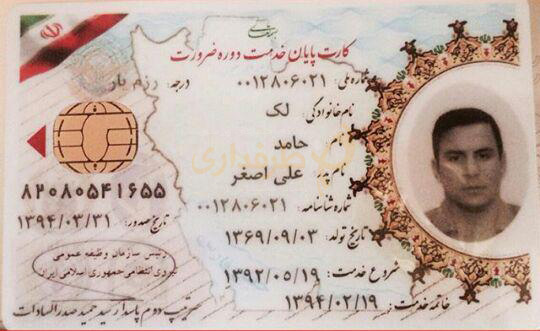 کارت پایان خدمت دوره ضرورت
شماره ملی: ۰۰۱۲۸۰۶۰۲۱ درجه: رزم یار
نام خانوادگی: لک
نام: حامد
نام پدر: علی اصغر
شماره شناسنامه: ۰۰۱۲۸۰۶۰۲۱
تاریخ تولد: ۱۳۶۹/۰۹/۰۳
شروع خدمت: ۱۳۹۲/۰۵/۱۹
خاتمه خدمت: ۱۳۹۴/۰۲/۱۹
۸۲۰۸۰۵۴۱۶۵۵
تاریخ صدور: ۱۳۹۴/۰۳/۳۱
رئیس سازمان وظیفه عمومی
نیروی انتظامی جمهوری اسلامی ایران
سرتیپ دوم پاسدار سید حمید صدرالسادات
طرفداری